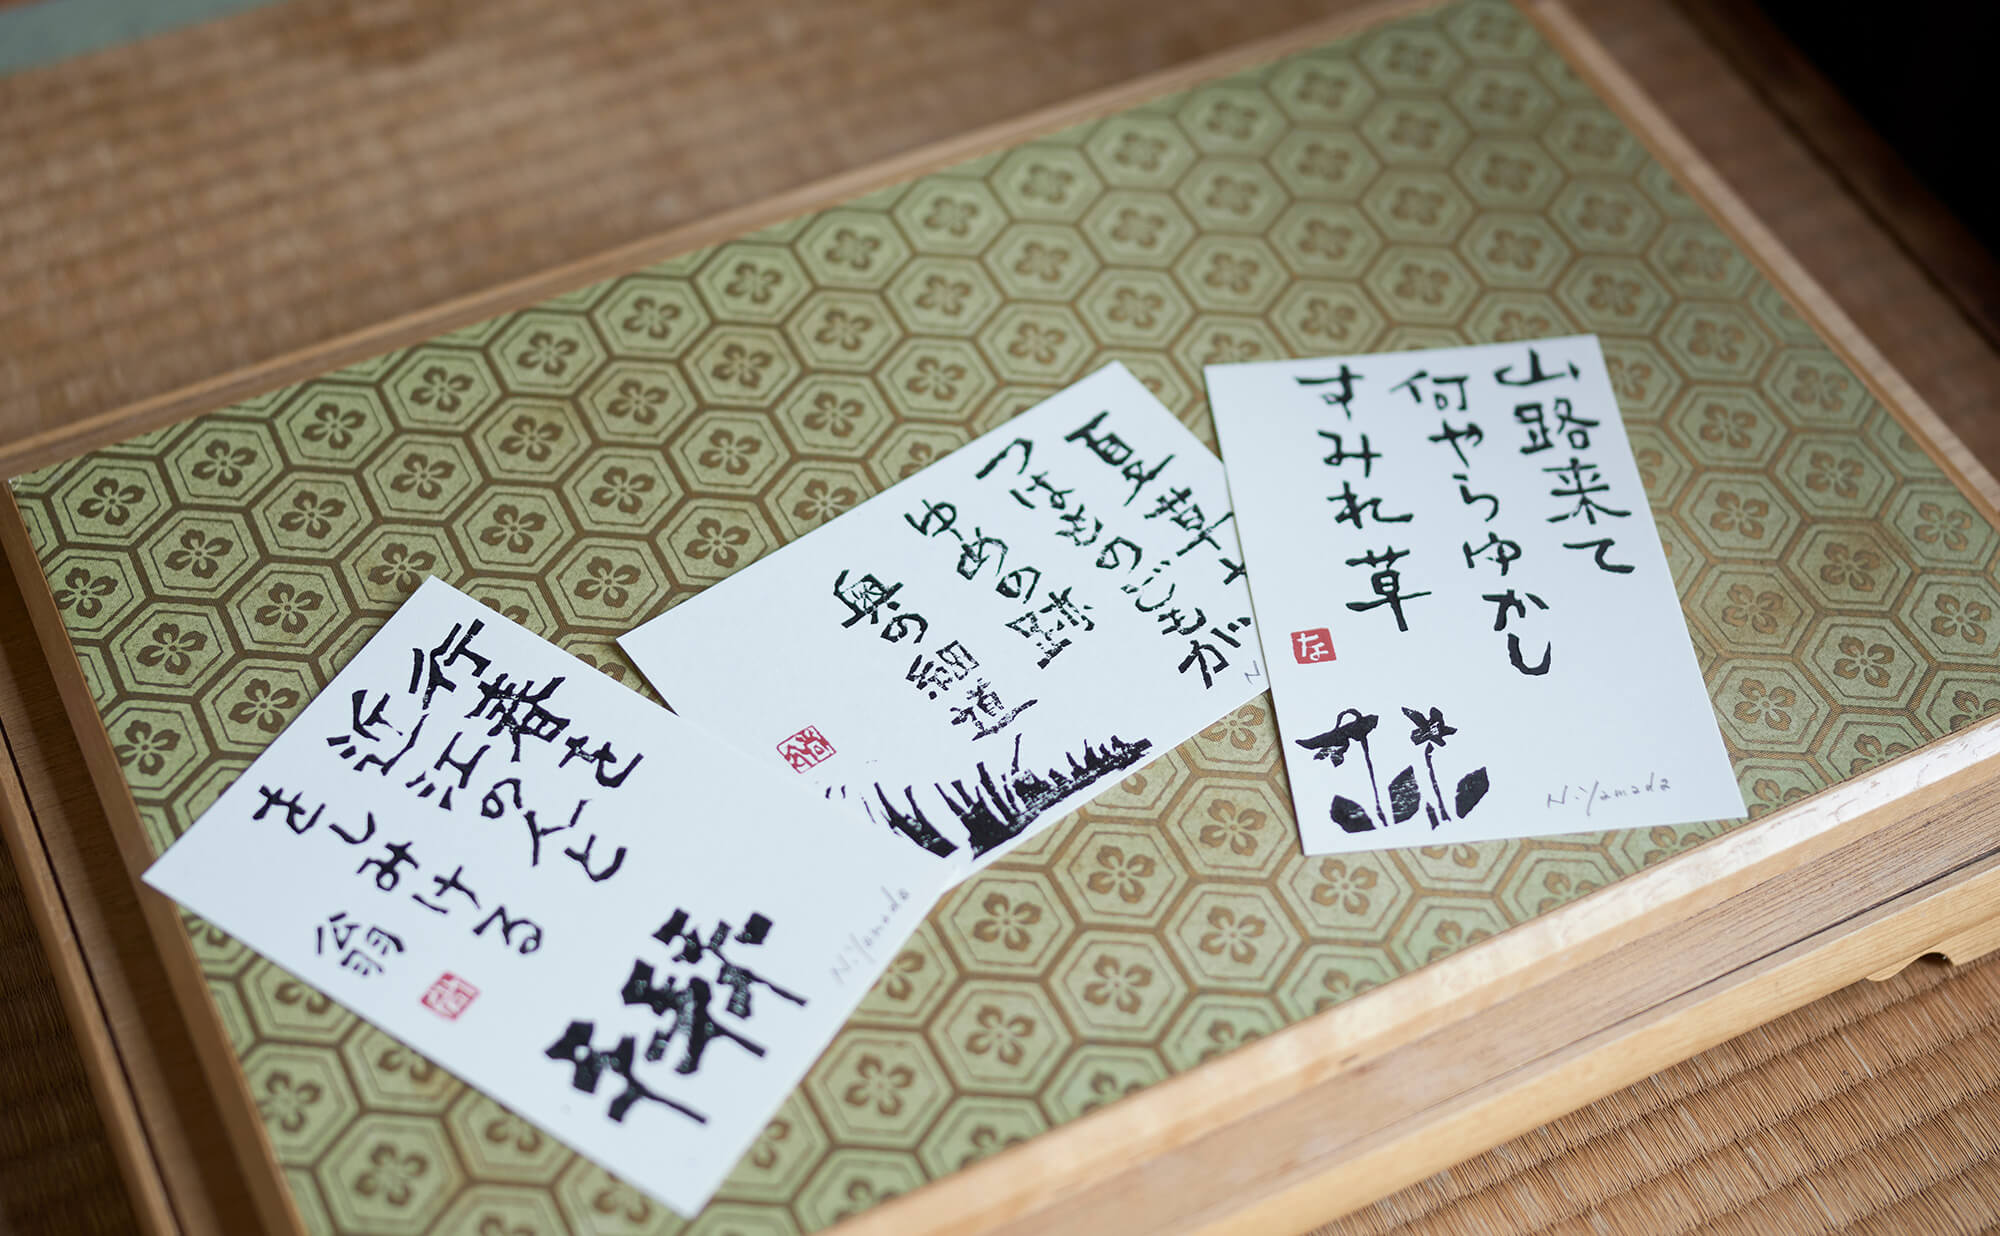 山路来て
何やらゆかし
すみれ草
な
N.Yamada
夏草や
つはものどもが
ゆめの跡
奥の細道
N
行春を
近江の人と
をしみける
翁
N.Yamada